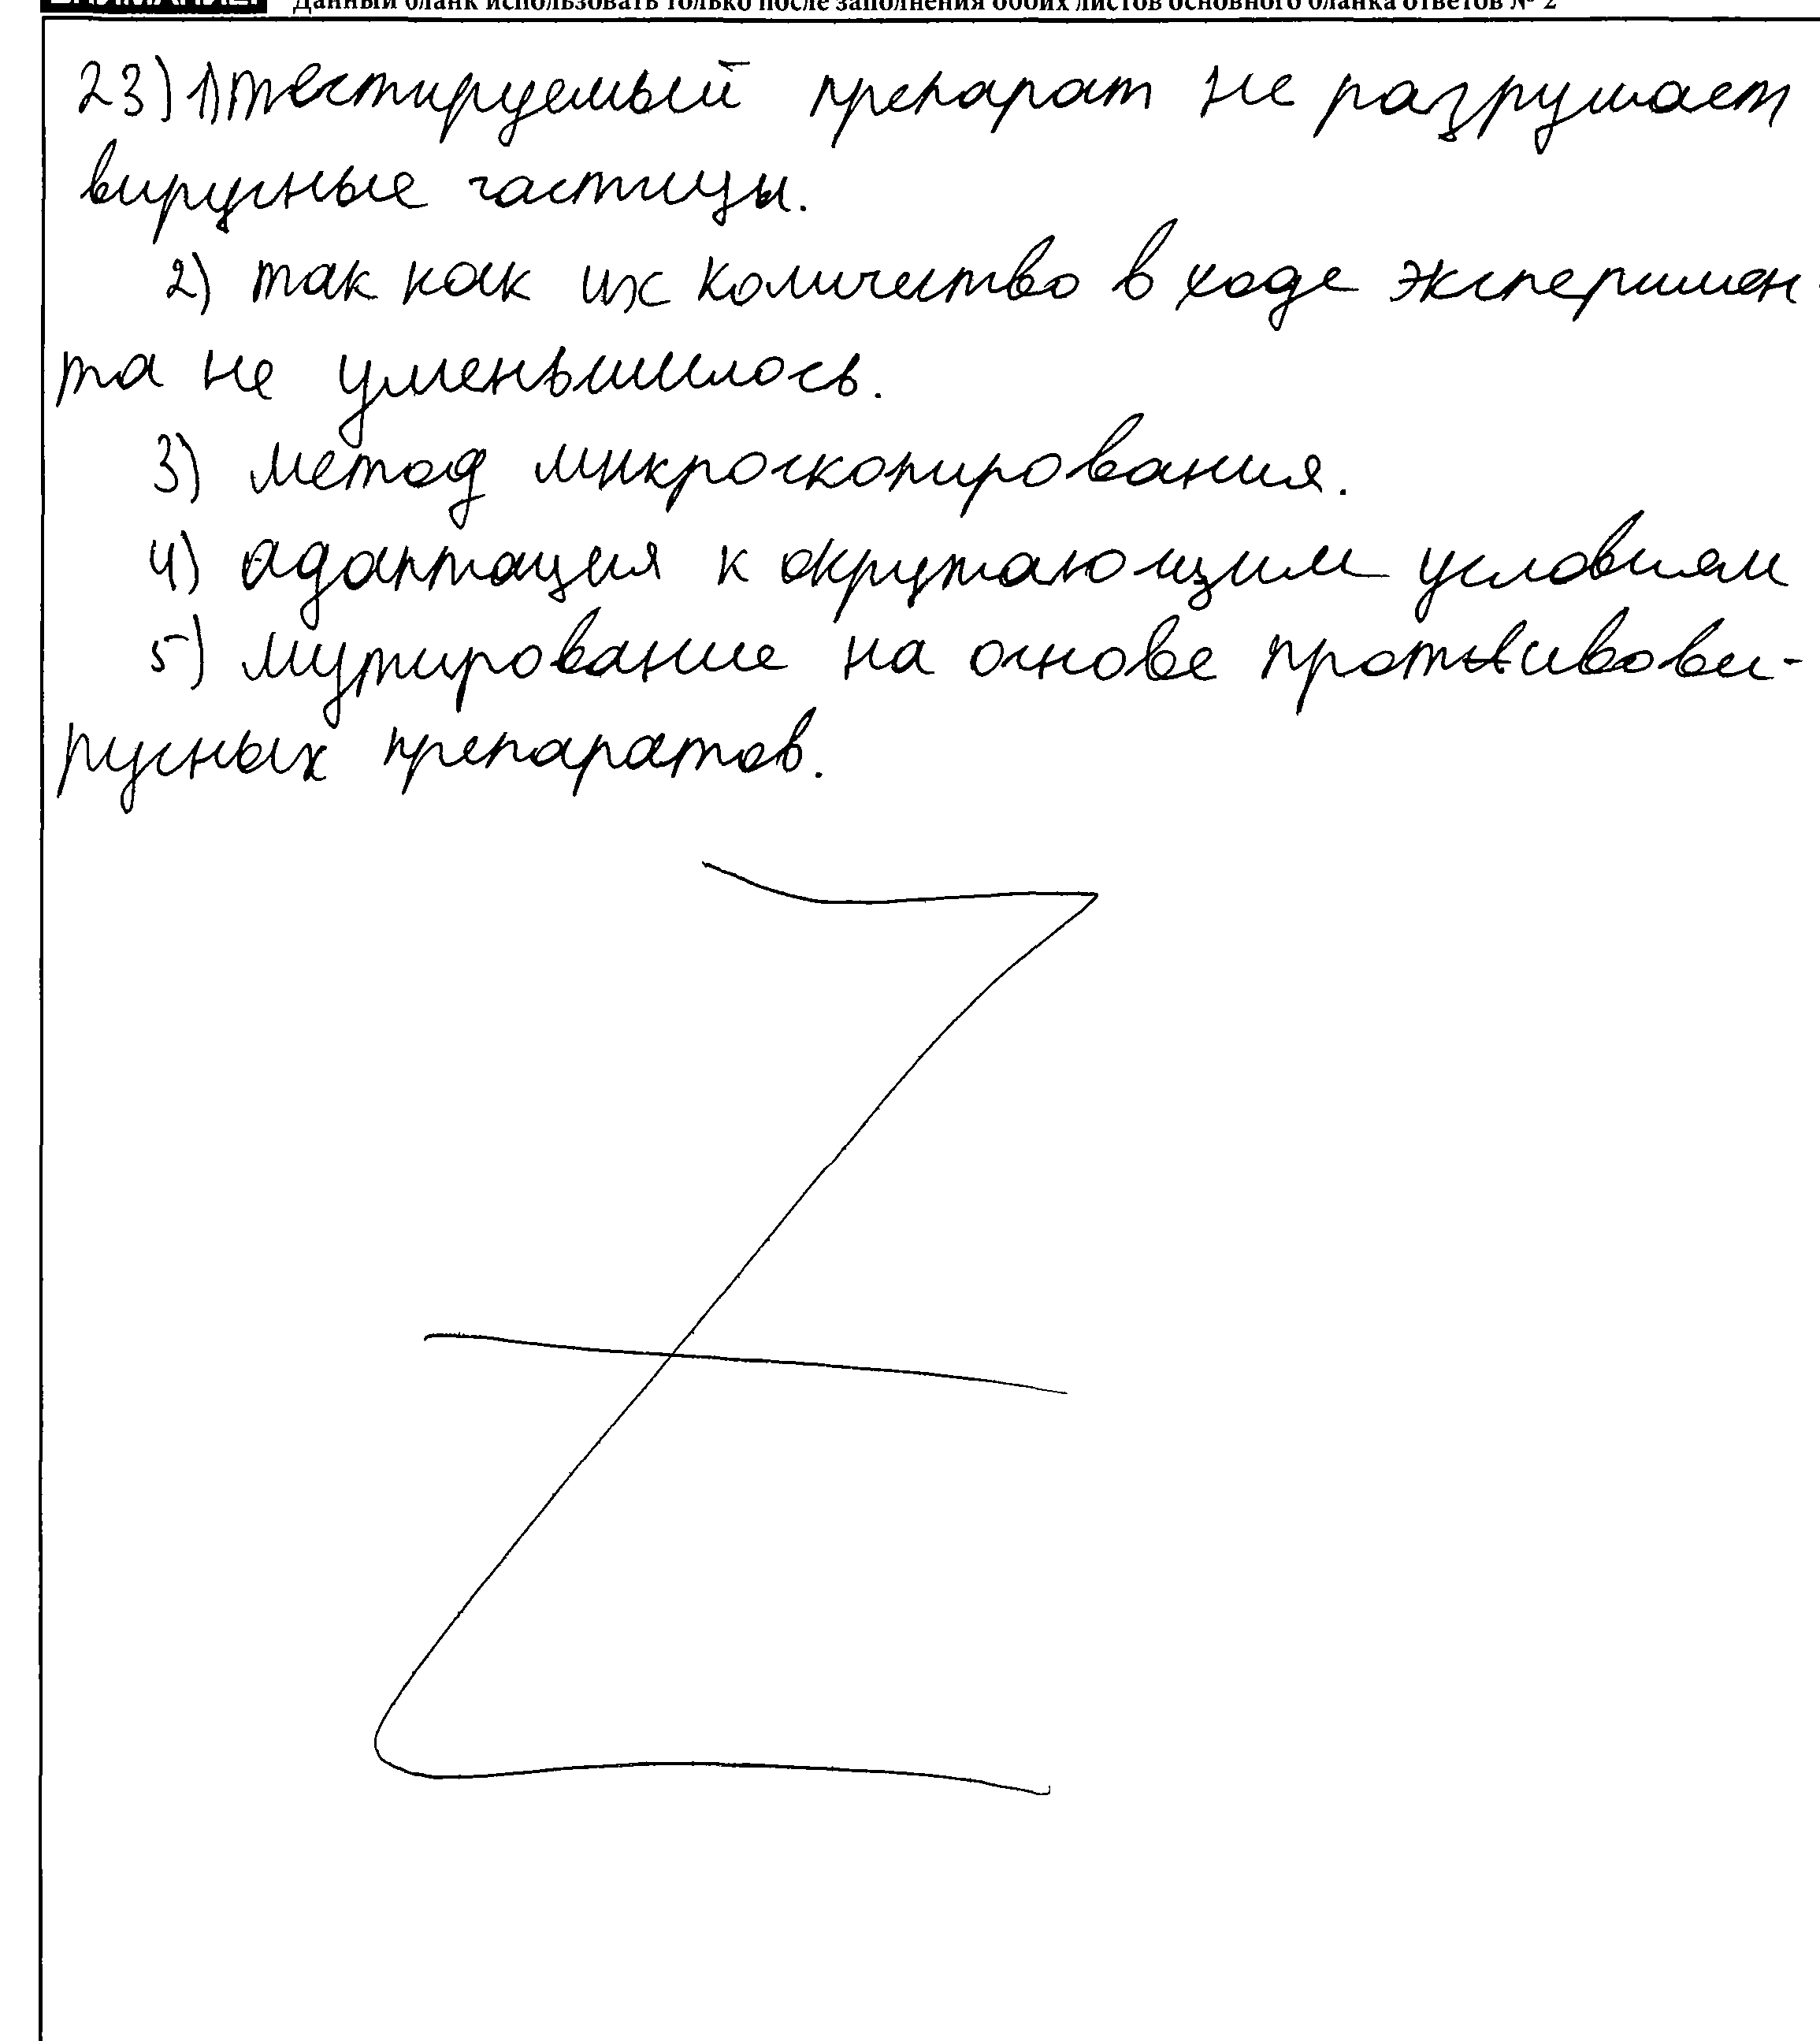 ВНИМАНИЕ! Данный бланк использовать только после заполнения обоих листов основного бланка ответов № 2
23) 1) тестируемый препарат не разрушает
вирусные частицы.
2) так как их количество в ходе эксперимен-
та не уменьшилось.
3) метод микроскопирования.
4) адаптация к окружающим условиям
5) мутирование на основе противови-
русных препаратов.